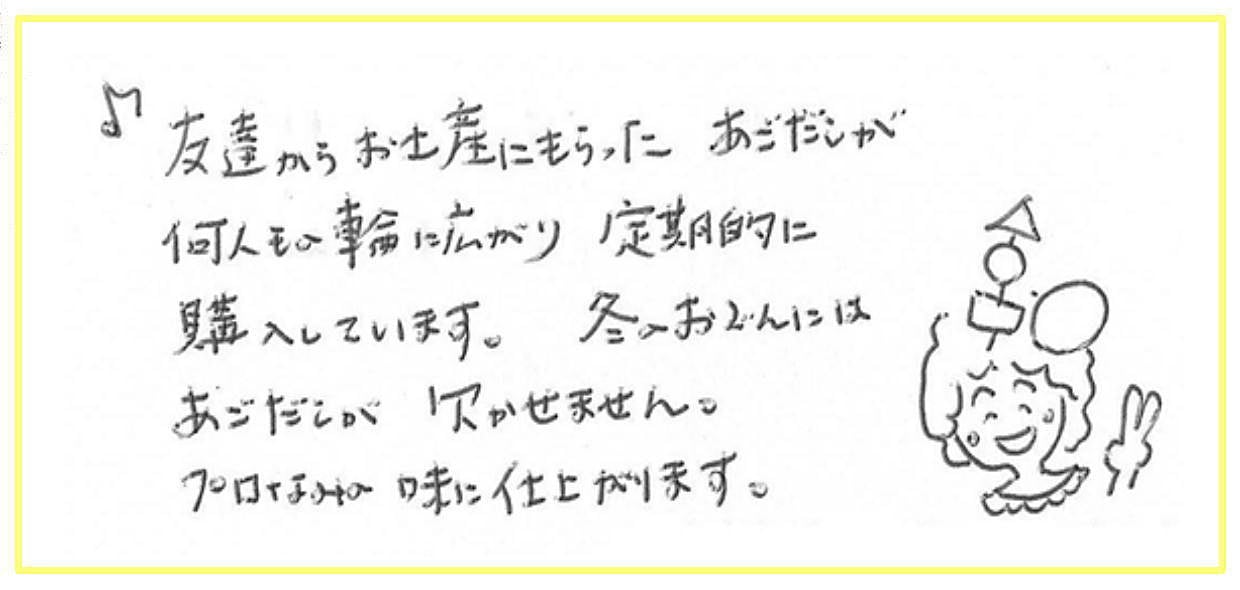 ♪ 友達からお土産にもらった あごだしが
何人もの輪に広がり 定期的に
購入しています。 冬のおでんには
あごだしが 欠かせません。
プロなみの味に仕上がります。